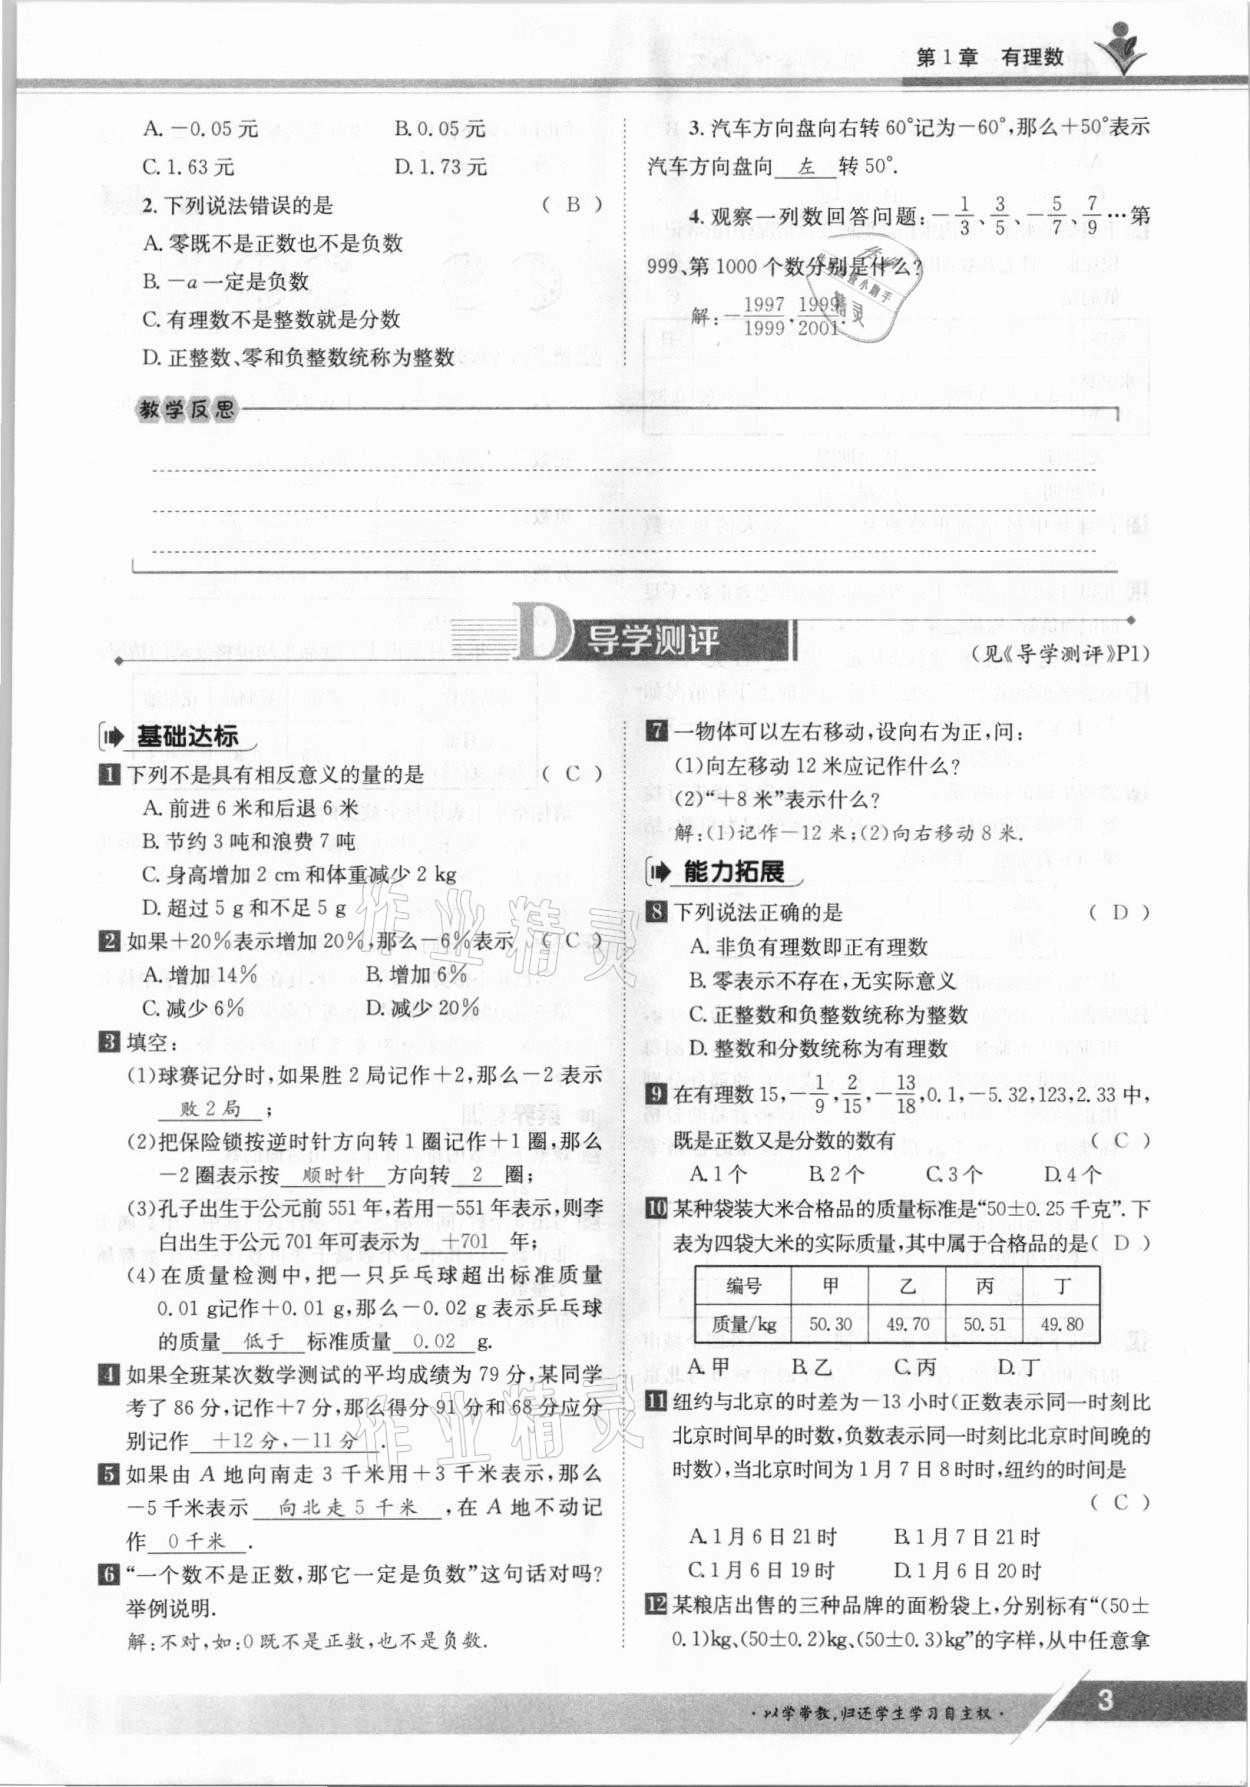 第1章 有理数
A.－0.05元 B.0.05元
C.1.63元 D.1.73元
2.下列说法错误的是 ( B )
A.零既不是正数也不是负数
B.－a一定是负数
C.有理数不是整数就是分数
D.正整数、零和负整数统称为整数
3.汽车方向盘向右转60°记为－60°,那么＋50°表示
汽车方向盘向 左 转50°.
4.观察一列数回答问题:－1/3、3/5、－5/7、7/9…第
999、第1000个数分别是什么?
解:－1997/1999,1999/2001.
教学反思
D 导学测评
(见《导学测评》P1)
基础达标
1 下列不是具有相反意义的量的是 ( C )
A.前进6米和后退6米
B.节约3吨和浪费7吨
C.身高增加2 cm和体重减少2 kg
D.超过5 g和不足5 g
2 如果＋20%表示增加20%,那么－6%表示 ( C )
A.增加14% B.增加6%
C.减少6% D.减少20%
3 填空:
(1)球赛记分时,如果胜2局记作＋2,那么－2表示
败2局 ;
(2)把保险锁按逆时针方向转1圈记作＋1圈,那么
－2圈表示按 顺时针 方向转 2 圈;
(3)孔子出生于公元前551年,若用－551年表示,则李
白出生于公元701年可表示为 ＋701 年;
(4)在质量检测中,把一只乒乓球超出标准质量
0.01 g记作＋0.01 g,那么－0.02 g表示乒乓球
的质量 低于 标准质量 0.02 g.
4 如果全班某次数学测试的平均成绩为79分,某同学
考了86分,记作＋7分,那么得分91分和68分应分
别记作 ＋12分,－11分 .
5 如果由A地向南走3千米用＋3千米表示,那么
－5千米表示 向北走5千米 ,在A地不动记
作 0千米 .
6 “一个数不是正数,那它一定是负数”这句话对吗?
举例说明.
解:不对,如:0既不是正数,也不是负数.
7 一物体可以左右移动,设向右为正,问:
(1)向左移动12米应记作什么?
(2)“＋8米”表示什么?
解:(1)记作－12米;(2)向右移动8米.
能力拓展
8 下列说法正确的是 ( D )
A.非负有理数即正有理数
B.零表示不存在,无实际意义
C.正整数和负整数统称为整数
D.整数和分数统称为有理数
9 在有理数15,－1/9,2/15,－13/18,0.1,－5.32,123,2.33中,
既是正数又是分数的数有 ( C )
A.1个 B.2个 C.3个 D.4个
10 某种袋装大米合格品的质量标准是“50±0.25千克”.下
表为四袋大米的实际质量,其中属于合格品的是( D )
编号 甲 乙 丙 丁
质量/kg 50.30 49.70 50.51 49.80
A.甲 B.乙 C.丙 D.丁
11 纽约与北京的时差为－13小时(正数表示同一时刻比
北京时间早的时数,负数表示同一时刻比北京时间晚的
时数),当北京时间为1月7日8时时,纽约的时间是
( C )
A.1月6日21时 B.1月7日21时
C.1月6日19时 D.1月6日20时
12 某粮店出售的三种品牌的面粉袋上,分别标有“(50±
0.1)kg、(50±0.2)kg、(50±0.3)kg”的字样,从中任意拿
·以学带教,归还学生学习自主权·
3
作业精灵
作业精灵